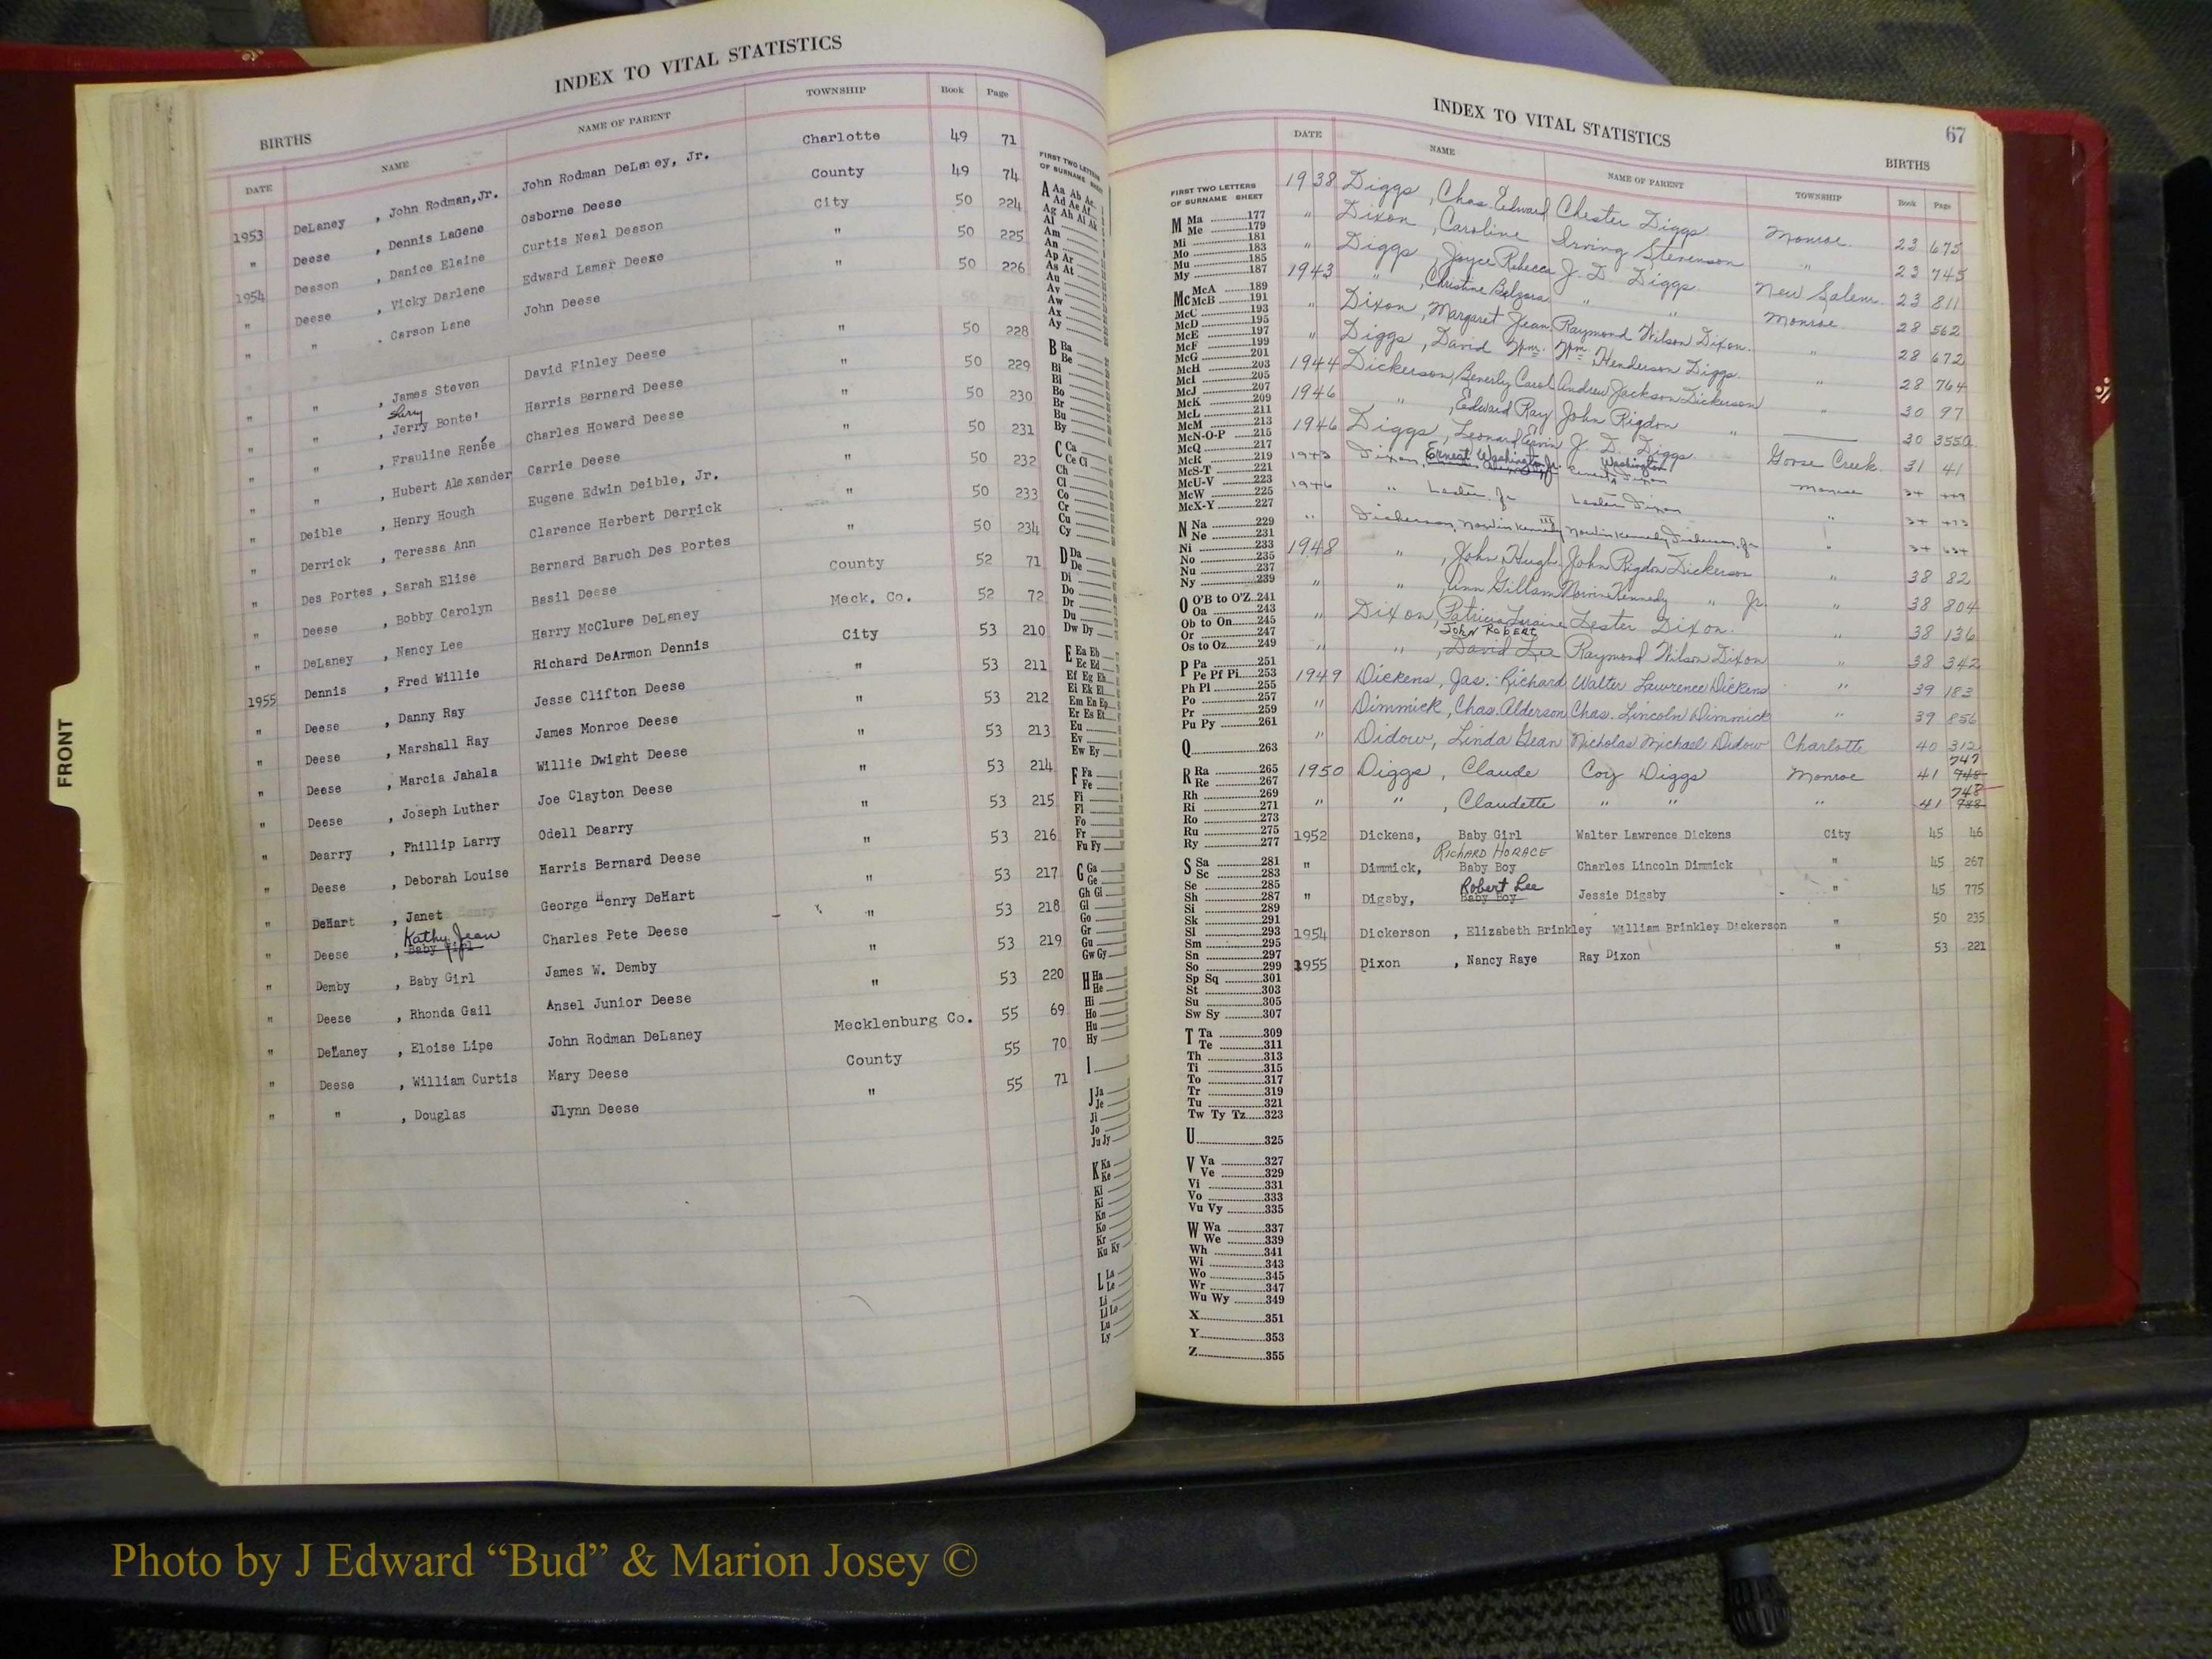 INDEX TO VITAL STATISTICS
BIRTHS
DATE NAME NAME OF PARENT TOWNSHIP Book Page
1953 DeLaney , John Rodman, Jr. John Rodman DeLaney, Jr. Charlotte 49 71
" Deese , Dennis LaGene Osborne Deese County 49 74
1954 Deason , Danice Elaine Curtis Neal Deason City 50 224
" Deese , Vicky Darlene Edward Lamar Deese " 50 225
" " , Carson Lane John Deese " 50 226
" " , James Steven David Finley Deese " 50 228
" " , Jerry Bonte' Harris Bernard Deese " 50 229
" " , Frauline Renée Charles Howard Deese " 50 230
" " , Hubert Alexander Carrie Deese " 50 231
" Deible , Henry Hough Eugene Edwin Deible, Jr. " 50 232
" Derrick , Teressa Ann Clarence Herbert Derrick " 50 233
" Des Portes , Sarah Elise Bernard Baruch Des Portes " 50 234
" Deese , Bobby Carolyn Basil Deese County 52 71
" DeLaney , Nancy Lee Harry McClure DeLaney Meck. Co. 52 72
1955 Dennis , Fred Willie Richard DeArmon Dennis City 53 210
" Deese , Danny Ray Jesse Clifton Deese " 53 211
" Deese , Marshall Ray James Monroe Deese " 53 212
" Deese , Marcia Jahala Willie Dwight Deese " 53 213
" Deese , Joseph Luther Joe Clayton Deese " 53 214
" Dearry , Phillip Larry Odell Dearry " 53 215
" Deese , Deborah Louise Harris Bernard Deese " 53 216
" DeHart , Janet George Henry DeHart " 53 217
Kathy Jean
" Deese , Baby Girl Charles Pete Deese " 53 218
" Demby , Baby Girl James W. Demby " 53 219
" Deese , Rhonda Gail Ansel Junior Deese " 53 220
" DeLaney , Eloise Lipe John Rodman DeLaney Mecklenburg Co. 55 69
" Deese , William Curtis Mary Deese County 55 70
" " , Douglas Jlynn Deese " 55 71
FRONT
FIRST TWO LETTERS
OF SURNAME SHEET
A Aa Ab Ac
Ad Ae Af
Ag Ah Ai Ak
Al
Am
An
Ap Ar
As At
Au
Av
Aw
Ax
Ay
B Ba
Be
Bi
Bl
Bo
Br
Bu
By
C Ca
Ce Ci
Ch
Cl
Co
Cr
Cu
Cy
D Da
De
Di
Do
Dr
Du
Dw Dy
E Ea Eb
Ec Ed
Ef Eg Eh
Ei Ek El
Em En Ep
Er Es Et
Eu
Ev
Ew Ey
F Fa
Fe
Fi
Fl
Fo
Fr
Fu Fy
G Ga
Ge
Gh Gi
Gl
Go
Gr
Gu
Gw Gy
H Ha
He
Hi
Ho
Hu
Hy
I
J Ja
Je
Ji
Jo
Ju Jy
K Ka
Ke
Ki
Kn
Ko
Kr
Ku Ky
L La
Le
Li
Lu
Ly
INDEX TO VITAL STATISTICS 67
BIRTHS
DATE NAME NAME OF PARENT TOWNSHIP Book Page
FIRST TWO LETTERS
OF SURNAME SHEET
M Ma 177
Me 179
Mi 181
Mo 183
Mu 185
My 187
Mc McA 189
McB 191
McC 193
McD 195
McE 197
McF 199
McG 201
McH 203
McI 205
McJ 207
McK 209
McL 211
McM 213
McN-O-P 215
McQ 217
McR 219
McS-T 221
McU-V 223
McW 225
McX-Y 227
N Na 229
Ne 231
Ni 233
No 235
Nu 237
Ny 239
O O'B to O'Z 241
Oa 243
Ob to On 245
Or 247
Os to Oz 249
P Pa 251
Pe Pf Pi 253
Ph Pl 255
Po 257
Pr 259
Pu Py 261
Q 263
R Ra 265
Re 267
Rh 269
Ri 271
Ro 273
Ru 275
Ry 277
S Sa 281
Sc 283
Se 285
Sh 287
Si 289
Sk 291
Sl 293
Sm 295
Sn 297
So 299
Sp Sq 301
St 303
Su 305
Sw Sy 307
T Ta 309
Te 311
Th 313
Ti 315
To 317
Tr 319
Tu 321
Tw Ty Tz 323
U 325
V Va 327
Ve 329
Vi 331
Vo 333
Vu Vy 335
W Wa 337
We 339
Wh 341
Wi 343
Wo 345
Wr 347
Wu Wy 349
X 351
Y 353
Z 355
1938 Diggs, Chas. Edward Chester Diggs Monroe 23 675
" Dixon, Caroline Irving Stevenson " 23 745
" Diggs, Joyce Rebecca J. D. Diggs New Salem 23 811
1943 " , Christine " " Monroe 28 562
" Dixon, Margaret Jean Raymond Wilson Dixon " 28 672
" Diggs, David Wm. Wm. Henderson Diggs " 28 764
1944 Dickerson, Beverly Carol Andrew Jackson Dickerson " 30 97
1946 " , Edward Ray John Rigdon " 30 355a
1946 Diggs, Leonard Ervin J. D. Diggs Goose Creek 31 41
1943 Dixon, Ernest Washington Jr. Ernest Washington Dixon Monroe 34
1946 " Lester, Jr. Lester Dixon " 34
" Dickerson, Norvin Kennedy III Norvin Kennedy Dickerson, Jr. " 34 634
1948 " , John Hugh John Rigdon Dickerson " 38 82
" " , Ann Gillam Norvin Kennedy " Jr. " 38 804
" Dixon, Patricia Loraine Lester Dixon " 38 136
JOHN ROBERT
" " , David Lee Raymond Wilson Dixon " 38 342
1949 Dickens, Jas. Richard Walter Lawrence Dickens " 39 183
" Dimmick, Chas. Alderson Chas. Lincoln Dimmick " 39 856
" Didow, Linda Gean Nicholas Michael Didow Charlotte 40 312
747
1950 Diggs, Claude Coy Diggs Monroe 41 748
748
" " , Claudette " " " 41
1952 Dickens, Baby Girl Walter Lawrence Dickens City 45 46
RICHARD HORACE
" Dimmick, Baby Boy Charles Lincoln Dimmick " 45 267
Robert Lee
" Digsby, Baby Boy Jessie Digsby " 45 775
1954 Dickerson , Elizabeth Brinkley William Brinkley Dickerson " 50 235
1955 Dixon , Nancy Raye Ray Dixon " 53 221
Photo by J Edward “Bud” & Marion Josey ©